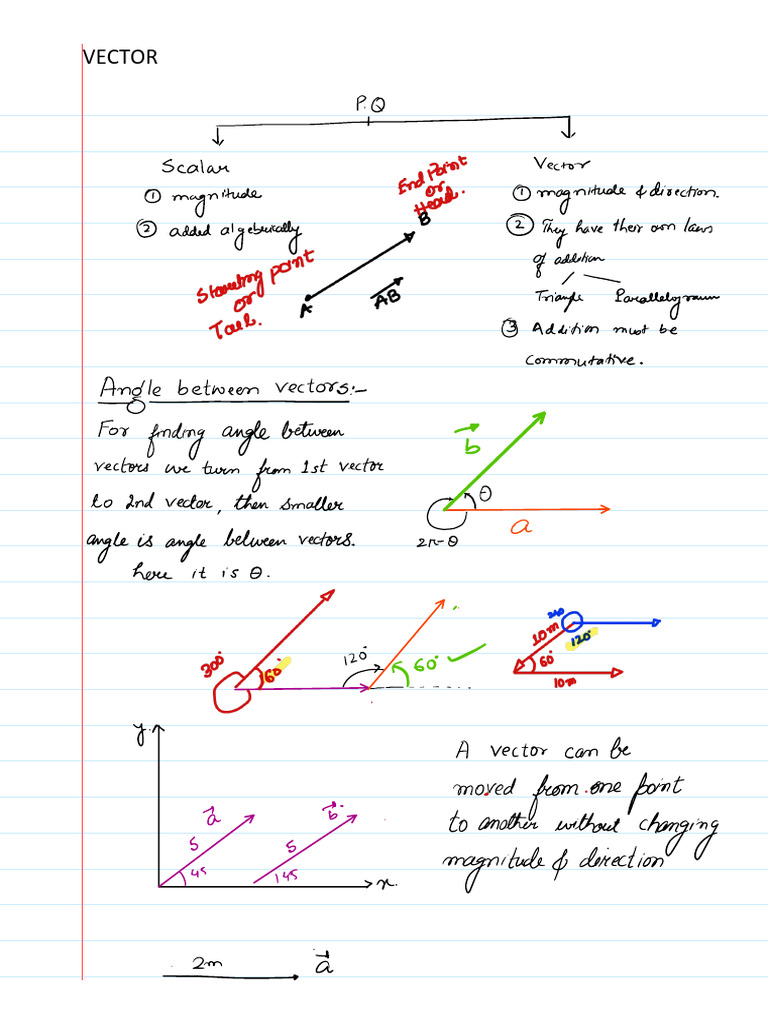 VECTOR
P.Q
Scalar
① magnitude
② added algebrically
Starting point
or
Tail.
A
AB
B
End Point
or
Head.
Vector
① magnitude & direction.
② They have their own laws
of addition
Triangle Parallelogram
③ Addition must be
commutative.
Angle between vectors:-
For finding angle between
vectors we turn from 1st vector
to 2nd vector, then smaller
angle is angle between vectors.
here it is θ.
b
θ
a
2π-θ
300°
60°
120°
60°
240
10m
120°
60°
10m
y.
a
5
45
b
5
45
x.
A vector can be
moved from one point
to another without changing
magnitude & direction
2m
a